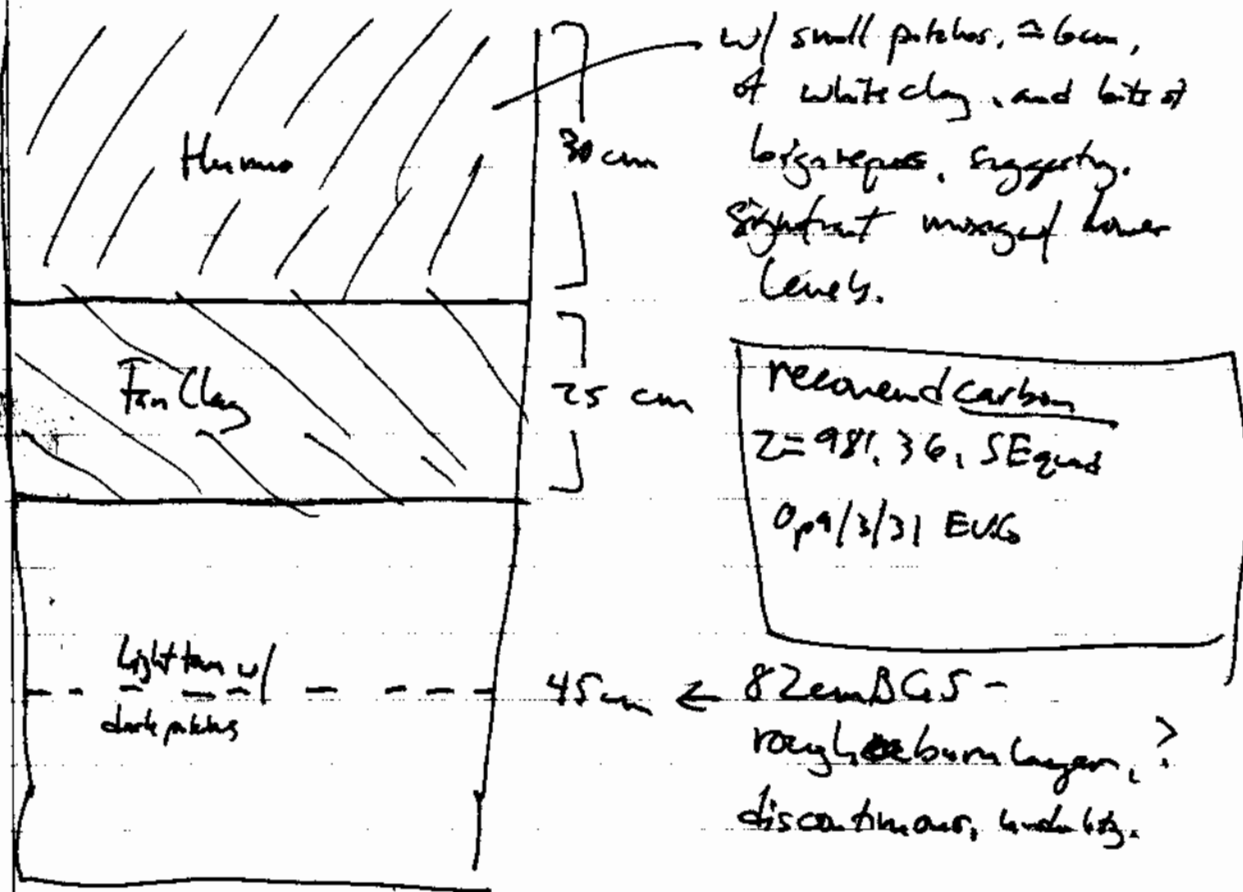 Humus
30 cm
w/ small patches, ≈ 6cm,
of white clay, and bits of
suggesting
significant mixing w/ lower
levels.
Tan Clay
25 cm
recovered carbon
Z= 981.36, SEquad
Op9/3/31
light tan w/
dark patches
45cm ← 82cmBGS -
rough burn layer, ?
discontinuous, undulating.